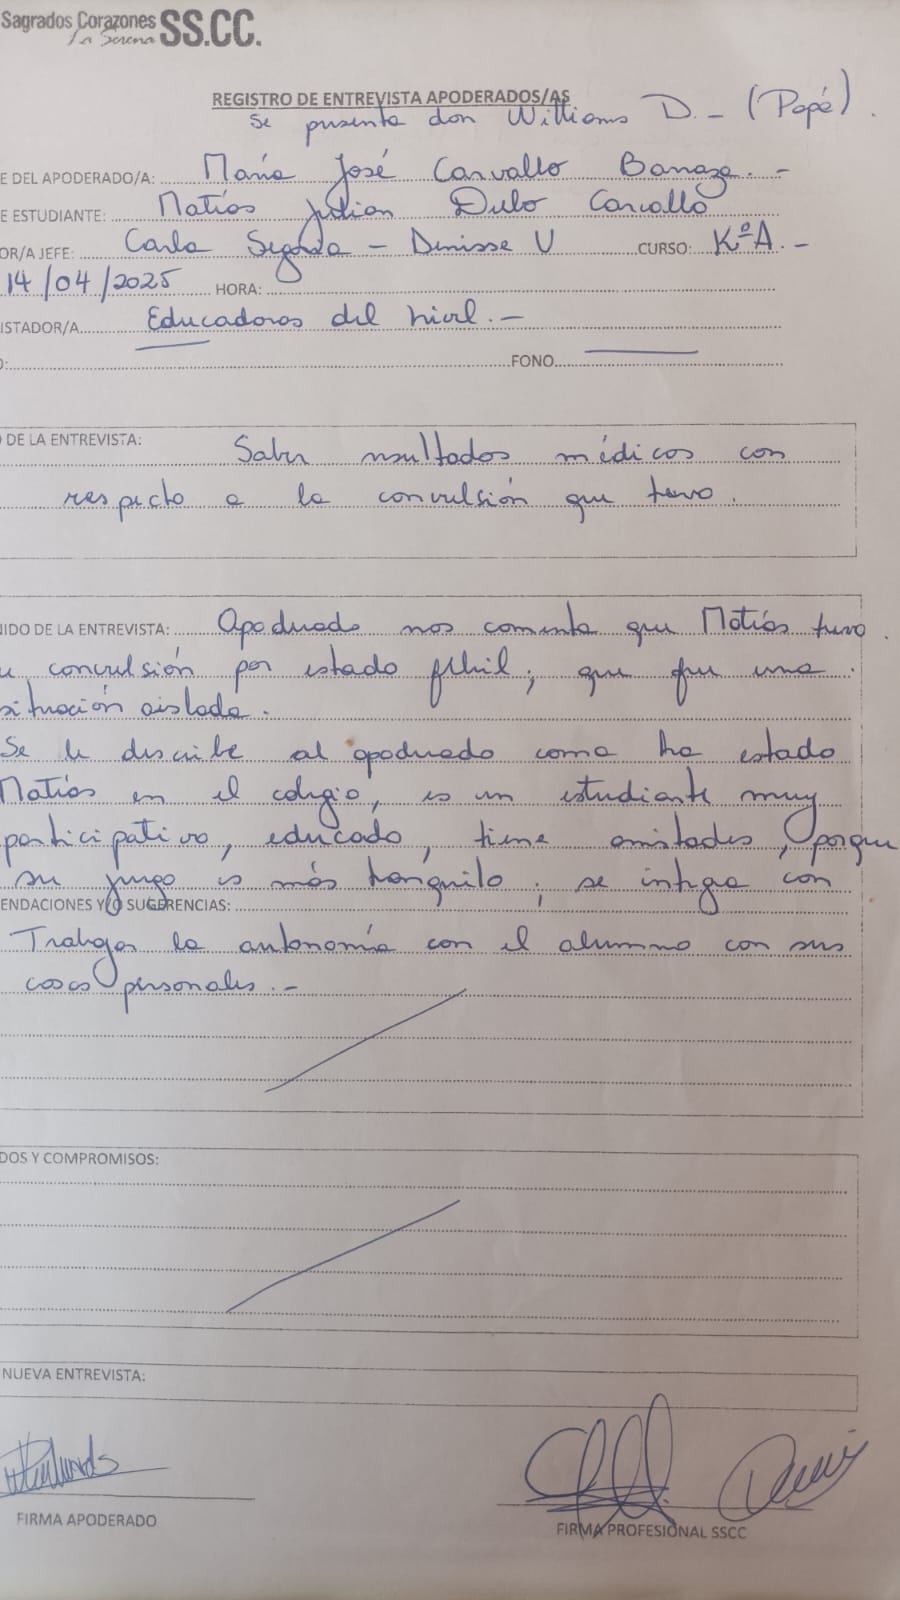 Sagrados Corazones SS.CC.
La Serena
REGISTRO DE ENTREVISTA APODERADOS/AS
Se presenta don Williams D. - (Papá).
E DEL APODERADO/A: María José Carvallo
E ESTUDIANTE: Matías Julian Dubo Carvallo
OR/A JEFE: Carla Segovia - Denisse V CURSO: KºA. -
14/04/2025 HORA:
ISTADOR/A Educadoras del nivel. -
FONO
DE LA ENTREVISTA: Saber resultados médicos con
respecto a la convulsión que tuvo.
NIDO DE LA ENTREVISTA: Apoderado nos comenta que Matías tuvo
convulsión por estado febril; que fue una
situación aislada.
Se le describe al apoderado como ha estado
Matías en el colegio, es un estudiante muy
participativo, educado, tiene amistades, porque
su juego es más tranquilo, se integra con
ENDACIONES Y/O SUGERENCIAS:
Trabajar la autonomía con el alumno con sus
cosas personales. -
DOS Y COMPROMISOS:
NUEVA ENTREVISTA:
FIRMA APODERADO
FIRMA PROFESIONAL SSCC